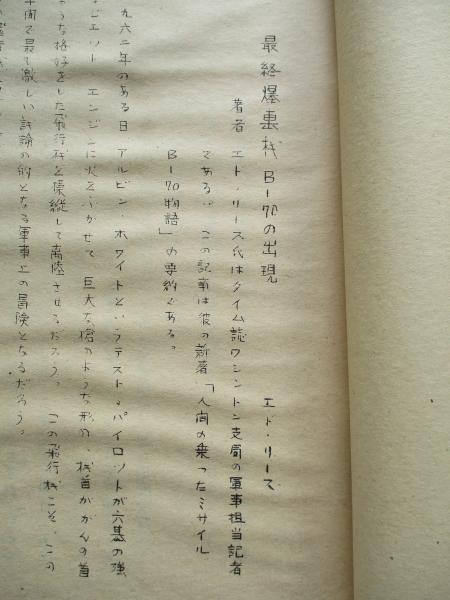 最終爆裏機 B-70の出現
エド・リーズ
著者 エド・リース氏はタイム誌ワシントン支局の軍事担当記者
である。この記事は彼の新著「人間の乗ったミサイル
B-70物語」の要約である。
九六二年のある日 アルビン・ホワイトというテスト・パイロットが六基の強
エット エンジンに火をふかせて 巨大な槍のような形分、機首がかんの首
うな格好をした飛行機を操縦して離陸させるだろう。 この飛行機こそ、この
年間で最て激しい討論の的となる軍事上の冒険となるだろう。